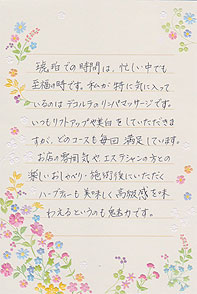 琥珀での時間は、忙しい中でも
至福の時です。私が特に気に入って
いるのはデコルテのリンパマッサージです。
いつもリフトアップや美白をしていただきま
すが、どのコースも毎回満足しています。
お店の雰囲気やエステシャンの方との
楽しいおしゃべり・施術後にいただく
ハーブティーも美味しく高級感を味
わえるというのも魅力です。